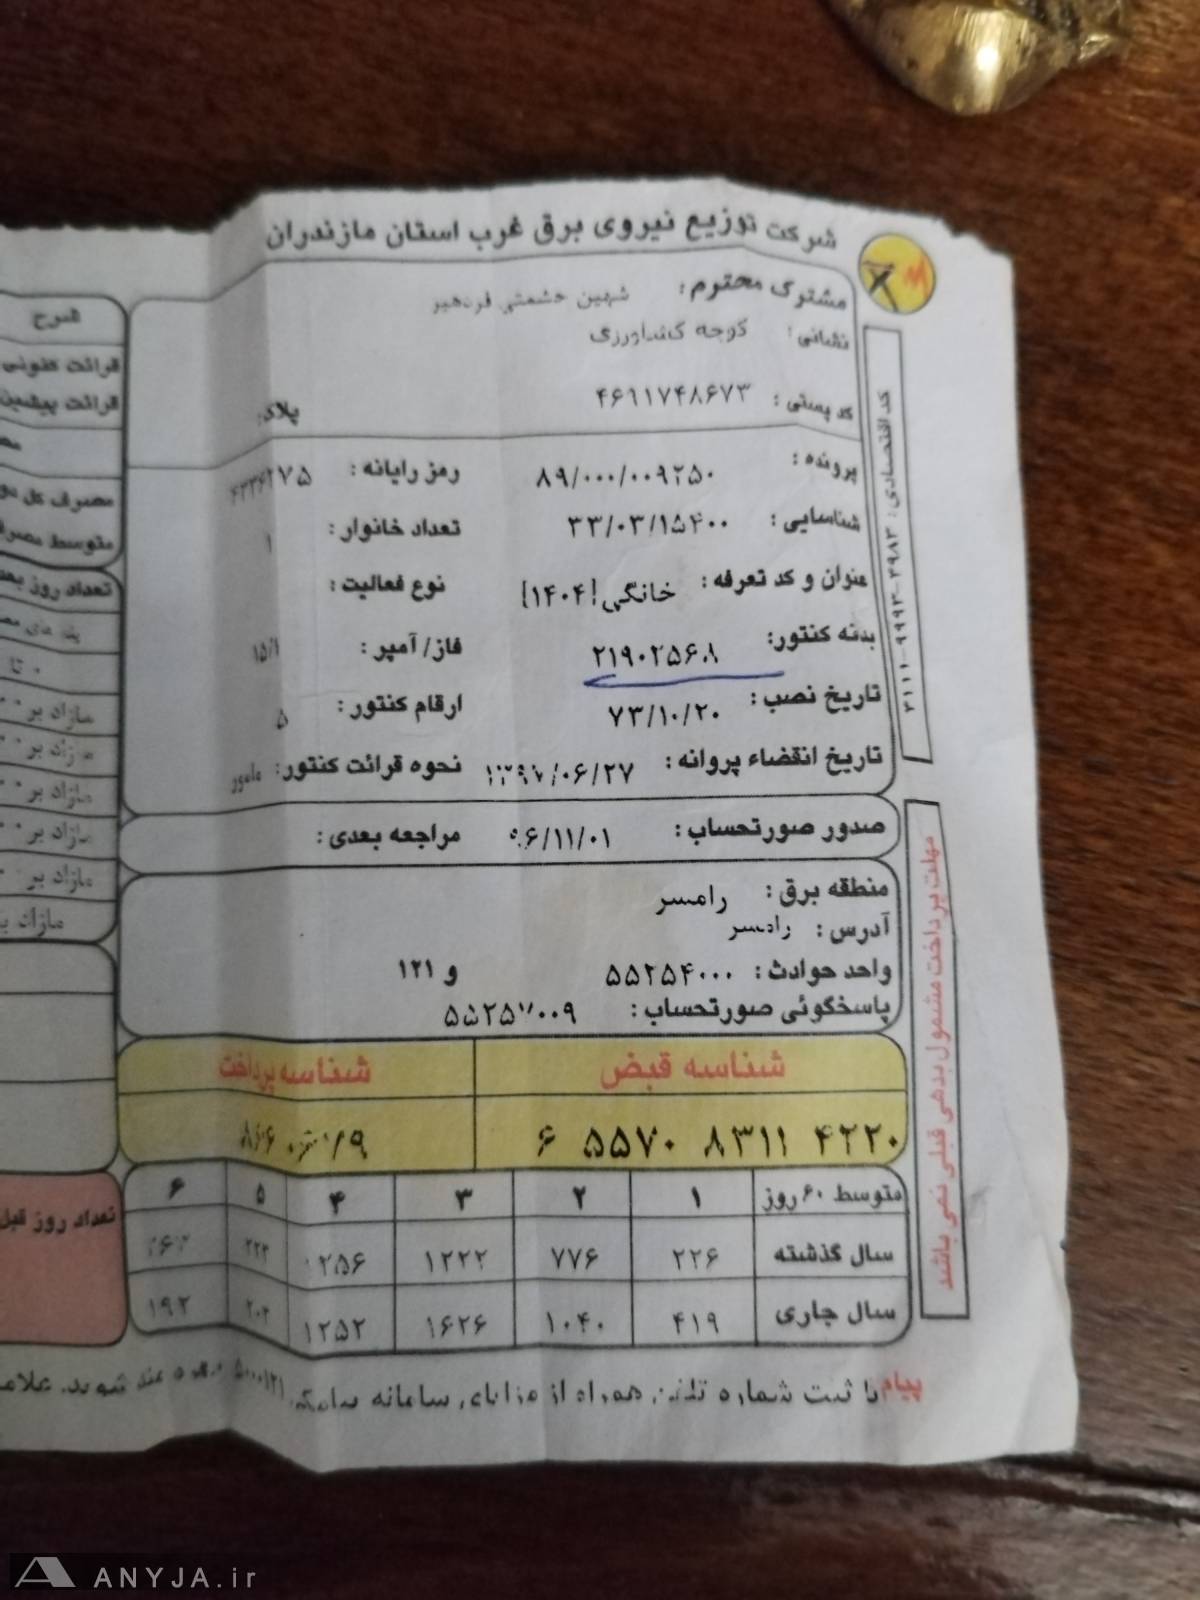 شرکت توزیع نیروی برق غرب استان مازندران
مشترک محترم: شهین حشمتی
نشانی: کوچه کشاورزی
کد پستی: ۴۶۹۱۷۴۸۶۷۳ پلاک:
پرونده: ۸۹/۰۰۰/۰۰۹۲۵۰ رمز رایانه:
شناسایی: ۳۳/۰۳/۱۵۴۰۰ تعداد خانوار: ۱
عنوان و کد تعرفه: خانگی[۱۴۰۴] نوع فعالیت:
بدنه کنتور: ۲۱۹۰۲۵۶۰۸ فاز/آمپر: ۱۵/۱
تاریخ نصب: ۷۳/۱۰/۲۰ ارقام کنتور: ۵
تاریخ انقضاء پروانه: ۱۳۹۷/۰۶/۲۷ نحوه قرائت کنتور: مامور
صدور صورتحساب: ۹۶/۱۱/۰۱ مراجعه بعدی:
منطقه برق: رامسر
آدرس: رامسر
واحد حوادث: ۵۵۲۵۴۰۰۰ و ۱۲۱
پاسخگوئی صورتحساب: ۵۵۲۵۷۰۰۹
شناسه قبض شناسه پرداخت
۶ ۵۵۷۰ ۸۳۱۱ ۴۲۲۰
متوسط ۶۰ روز ۱ ۲ ۳ ۴ ۵ ۶
سال گذشته ۲۲۶ ۷۷۶ ۱۲۲۲ ۱۲۵۶ ۲۲۳
سال جاری ۴۱۹ ۱۰۴۰ ۱۶۲۶ ۱۲۵۲ ۲۰۳ ۱۹۲
پیام با ثبت شماره تلفن همراه از مزایای سامانه پیامکی ۵۰۰۰۱۲۱ بهره مند شوید.
کد اقتصادی:
مهلت پرداخت مشمول بدهی قبلی نمی باشد
شرح
قرائت کنونی
قرائت پیشین
مصرف کل
متوسط مصرف
تعداد روز
۰ تا
مازاد بر
مازاد بر
مازاد بر
مازاد بر
مازاد بر
مازاد
تعداد روز
ANYJA.ir